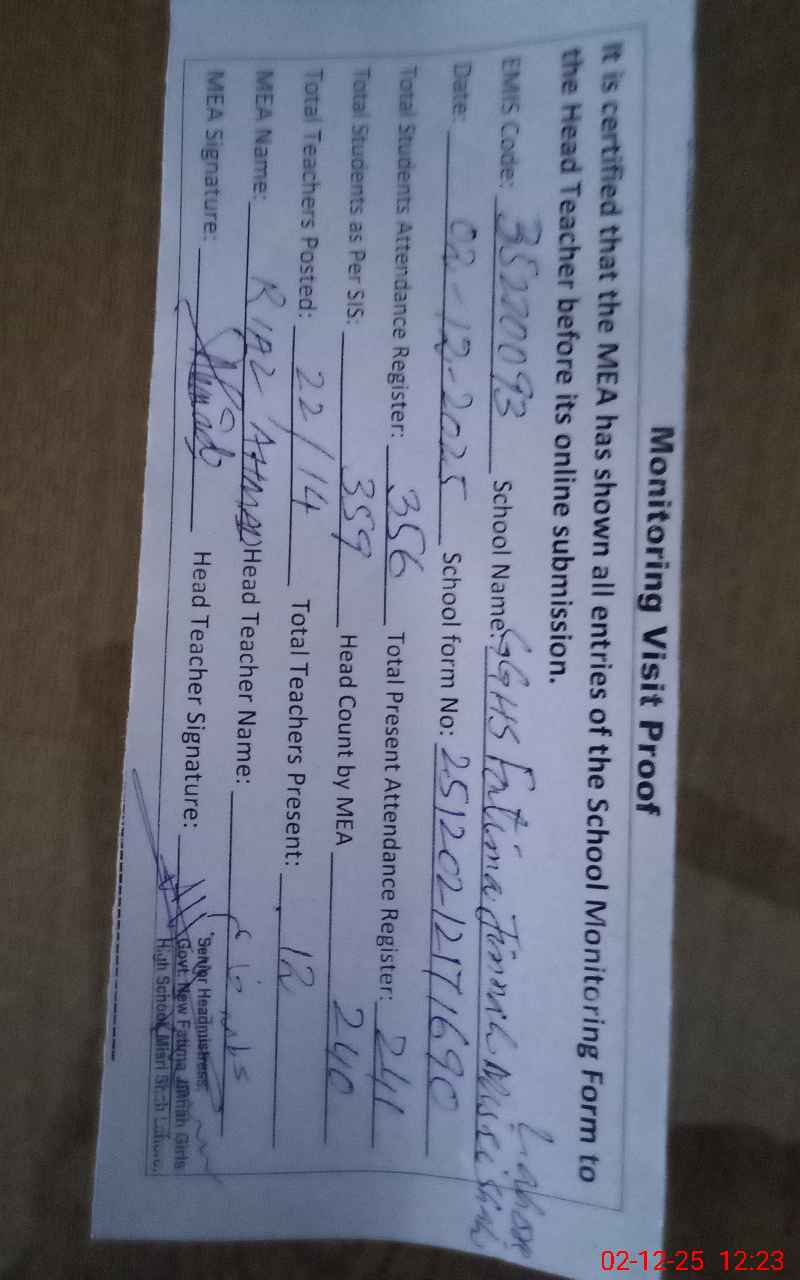 Monitoring Visit Proof
It is certified that the MEA has shown all entries of the School Monitoring Form to
the Head Teacher before its online submission.
EMIS Code: 35220093 School Name: GGHS Fatima Jinnah Missi Shah Lahore
Date: 02-12-2025 School form No: 251202-12171690
Total Students Attendance Register: 356 Total Present Attendance Register: 241
Total Students as Per SIS: 359 Head Count by MEA 240
Total Teachers Posted: 22/14 Total Teachers Present: 12
MEA Name: RIAZ AHMAD Head Teacher Name:
MEA Signature: Head Teacher Signature:
Senior Headmistress
Govt. New Fatima Jinnah Girls
High School Misri Shah Lahore.
02-12-25 12:23